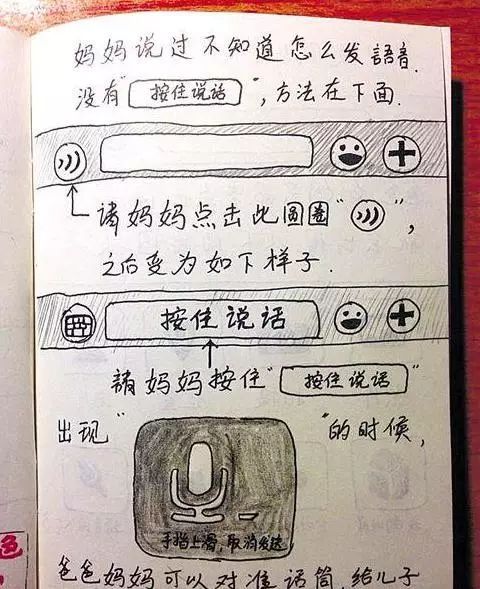 妈妈说过不知道怎么发語音.
没有“按住说话”,方法在下面.
请妈妈点击此圆圈“ ”,
之后变为如下样子.
按住说话
請妈妈按住“按住说话”
出现“ ”的时候,
手指上滑,取消发送
爸爸妈妈可以对准话筒,给儿子